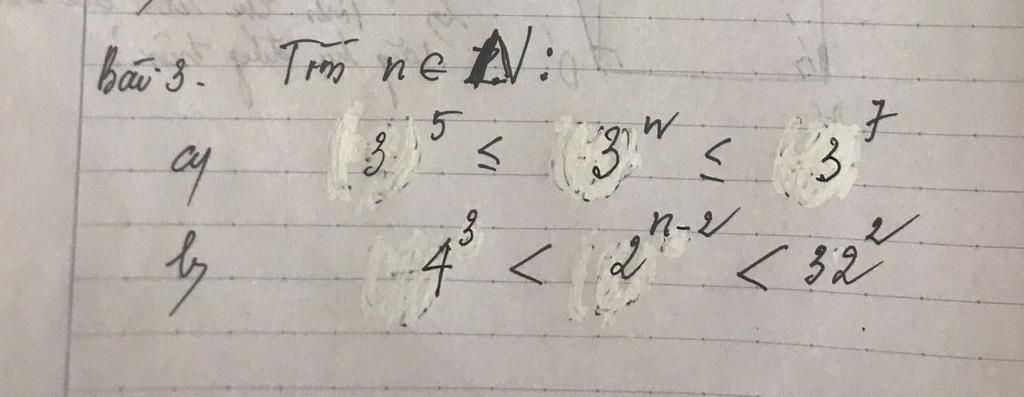 Bài 3. Tìm n ∈ N:
a) 3^5 ≤ 3^n ≤ 3^7
b) 4^3 < 2^{n-2} < 32^2